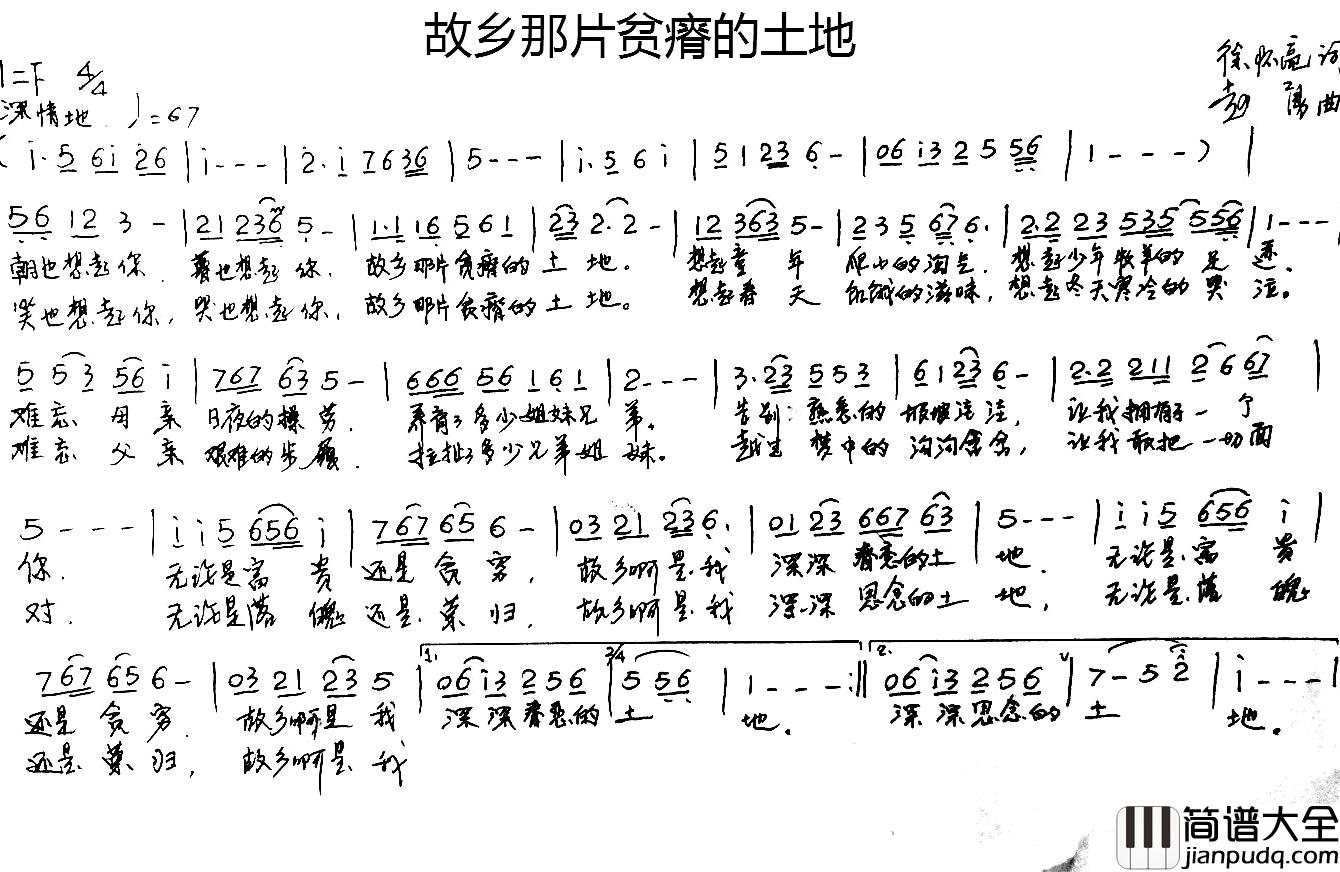 故乡那片贫瘠的土地
1=F 4/4
徐怀亮词
深情地 ♩=67
曲
( i·5 6i 26 | i--- | 2·i 7636 | 5--- | i·5 6 i | 5 1 23 6- | 06 i3 2 5 56 | 1--- ) |
56 12 3 - | 21 236 5·- | 1·1 16 561 | 23 2·2- | 12 363 5- | 235 67 6· | 2·2 23 535 556 | 1---
朝也想起你 暮也想起你, 故乡那片贫瘠的土地。 想起童年爬山的淘气, 想起少年牧羊的足迹。
笑也想起你, 哭也想起你, 故乡那片贫瘠的土地。 想起春天的滋味, 想起冬天寒冷的哭泣。
5 53 56 i | 767 63 5- | 666 56 161 | 2--- | 3·23 553 | 61 23 6- | 2·2 211 2 6 67 |
难忘母亲日夜的操劳, 养育了多少姐妹兄弟。 告别熟悉的洼洼, 让我拥有了一个
难忘父亲艰难的步履, 拉扯了多少兄弟姐妹。 梦中的沟沟岔岔, 让我敢把一切面
5--- | i i5 656 i | 767 65 6- | 03 21 23 6· | 01 23 667 63 | 5--- | i i5 656 i |
你. 无论是富贵还是贪穷, 故乡啊是我深深眷恋的土地. 无论是富贵
对. 无论是落魄还是荣归, 故乡啊是我深深思念的土地, 无论是落魄
767 65 6- | 03 21 23 5 | 1. 06 i3 2 56 | 3/4 5 56 | 1---:|| 2. 06 i3 256 | 7-52 | i--- |
还是贪穷. 故乡啊是我 深深眷恋的土地。 深深思念的土地。
还是荣归, 故乡啊是我
简谱大全
jianpudq.com